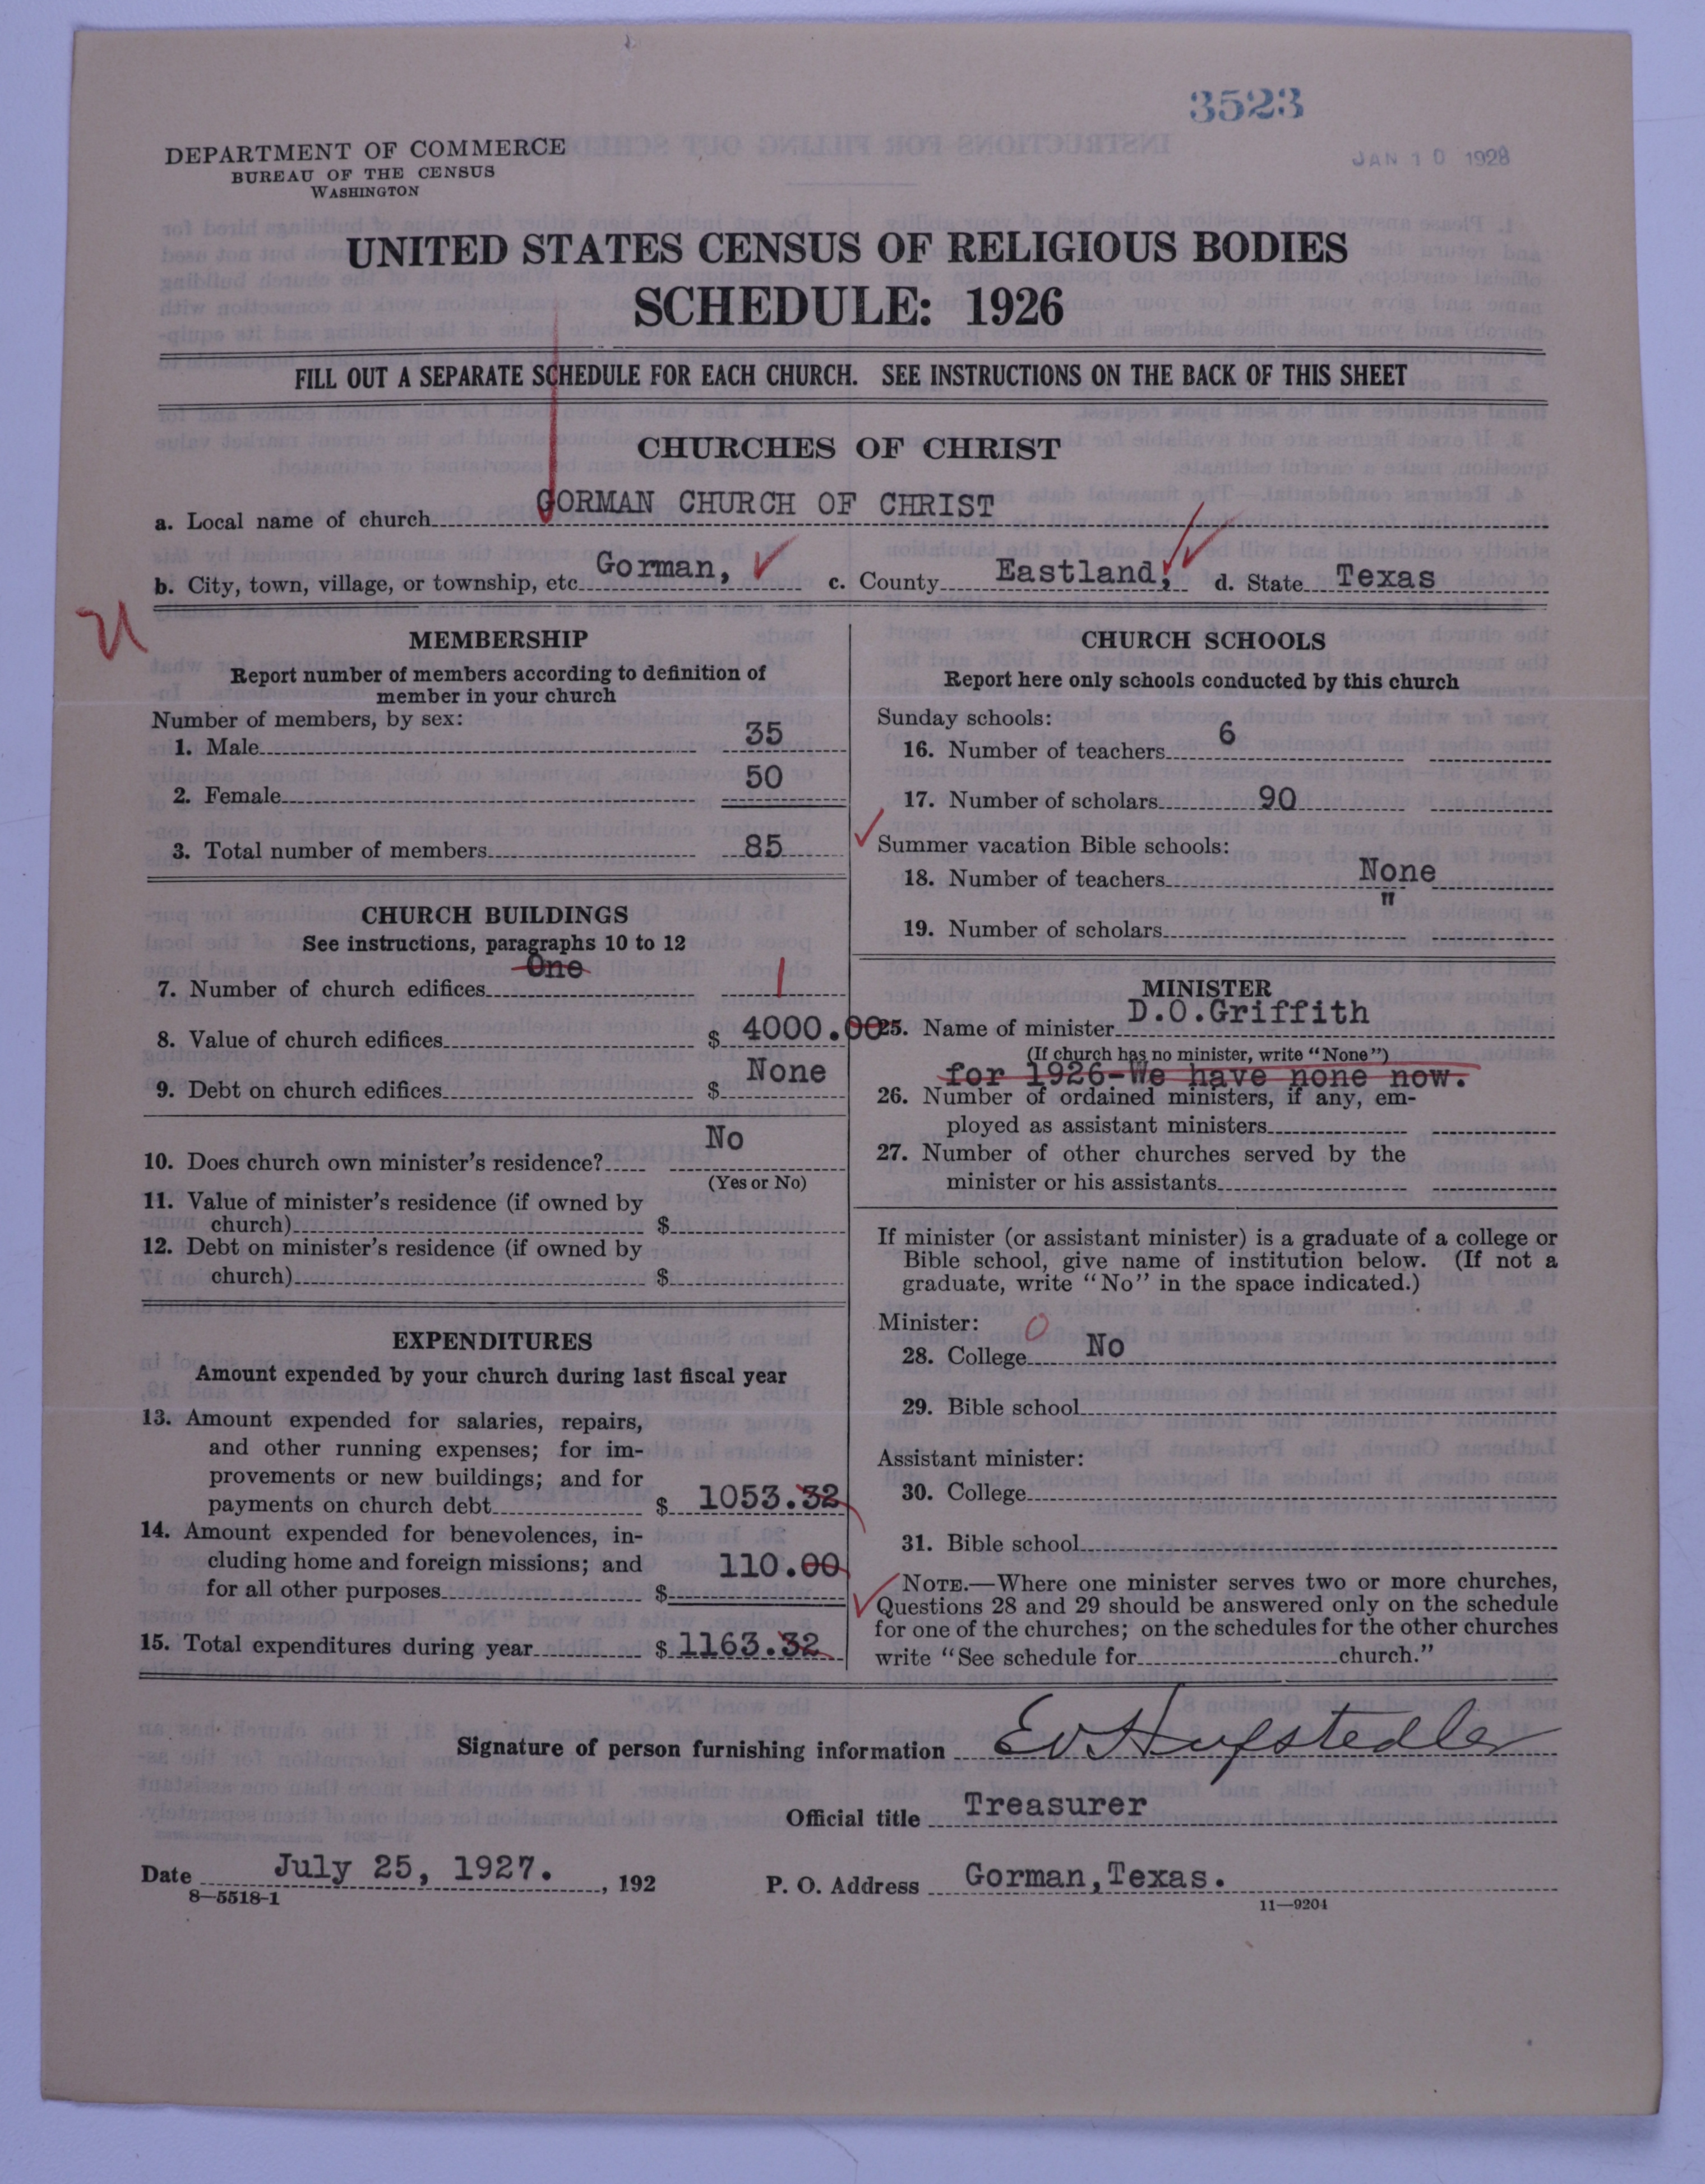 3523
JAN 10 1928
DEPARTMENT OF COMMERCE
BUREAU OF THE CENSUS
WASHINGTON
UNITED STATES CENSUS OF RELIGIOUS BODIES
SCHEDULE: 1926
FILL OUT A SEPARATE SCHEDULE FOR EACH CHURCH. SEE INSTRUCTIONS ON THE BACK OF THIS SHEET
CHURCHES OF CHRIST
a. Local name of church GORMAN CHURCH OF CHRIST
b. City, town, village, or township, etc. Gorman, c. County Eastland, d. State Texas
MEMBERSHIP
Report number of members according to definition of
member in your church
Number of members, by sex:
1. Male 35
2. Female 50
3. Total number of members 85
CHURCH BUILDINGS
See instructions, paragraphs 10 to 12
One
7. Number of church edifices 1
8. Value of church edifices $ 4000.00
9. Debt on church edifices $ None
10. Does church own minister's residence? No
(Yes or No)
11. Value of minister's residence (if owned by
church) $
12. Debt on minister's residence (if owned by
church) $
EXPENDITURES
Amount expended by your church during last fiscal year
13. Amount expended for salaries, repairs,
and other running expenses; for im-
provements or new buildings; and for
payments on church debt $ 1053.32
14. Amount expended for benevolences, in-
cluding home and foreign missions; and
for all other purposes $ 110.00
15. Total expenditures during year $ 1163.32
CHURCH SCHOOLS
Report here only schools conducted by this church
Sunday schools:
16. Number of teachers 6
17. Number of scholars 90
Summer vacation Bible schools:
18. Number of teachers None
19. Number of scholars "
MINISTER
25. Name of minister D.O.Griffith
(If church has no minister, write "None")
for 1926-We have none now.
26. Number of ordained ministers, if any, em-
ployed as assistant ministers
27. Number of other churches served by the
minister or his assistants
If minister (or assistant minister) is a graduate of a college or
Bible school, give name of institution below. (If not a
graduate, write "No" in the space indicated.)
Minister: 0
28. College No
29. Bible school
Assistant minister:
30. College
31. Bible school
NOTE.—Where one minister serves two or more churches,
Questions 28 and 29 should be answered only on the schedule
for one of the churches; on the schedules for the other churches
write "See schedule for church."
Signature of person furnishing information Ev Hufstedler
Official title Treasurer
Date July 25, 1927. , 192 P. O. Address Gorman, Texas.
8—5518-1
11—9204